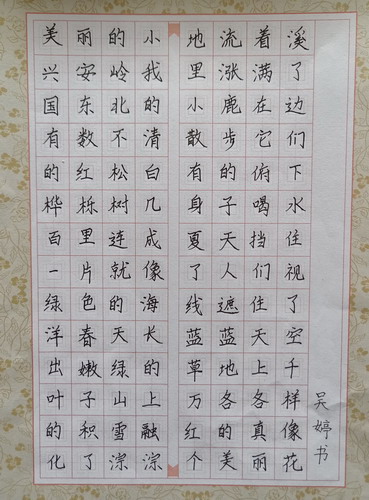 美丽的小
兴安岭我
国东北的
有数不清
的红松白
桦栎树几
百里连成
一片就像
绿色的海
洋春天长
出嫩绿的
叶子山上
的积雪融
化了淙淙
地流着溪
里涨满了
小鹿在边
散步它们
有的俯下
身子喝水
夏天挡住
了人们视
线遮住了
蓝蓝天空
草地上千
万各各样
红的真像
个美丽花
吴婷书